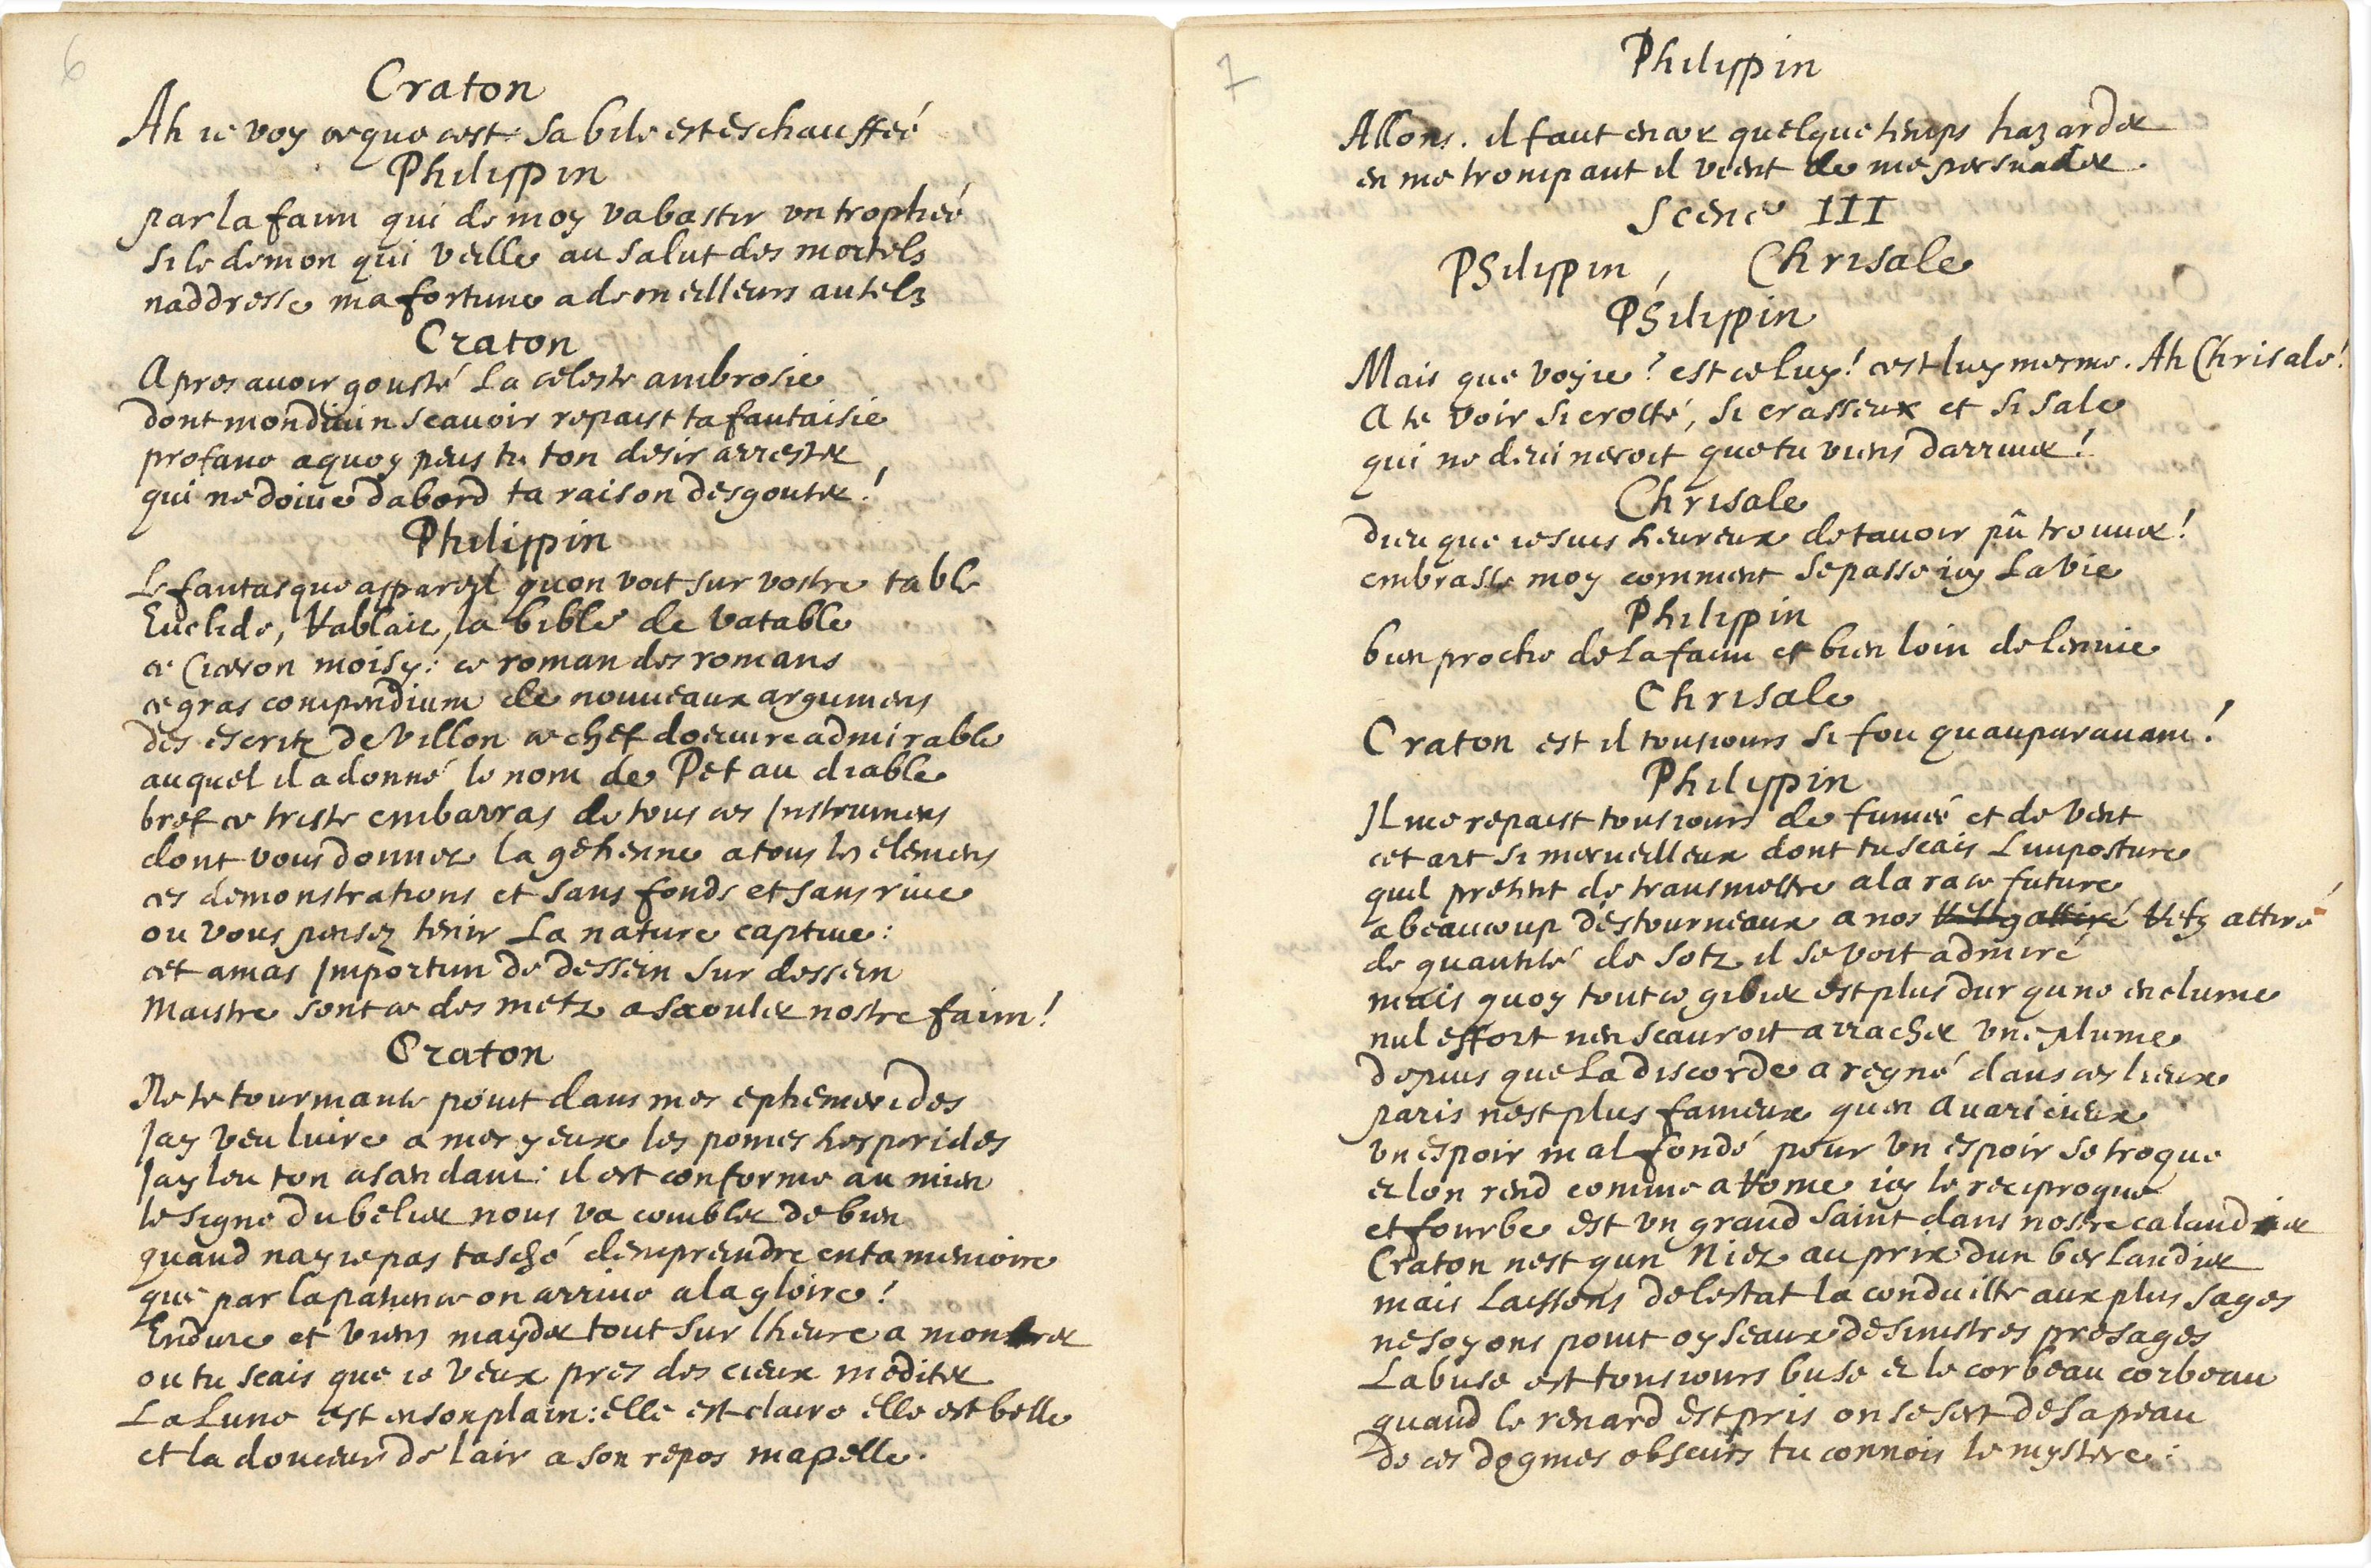 6
Craton
Ah ie voy ce que cest. Sa bile est eschauffeé
Philippin
par la faim qui de moy va bastir vn tropheé
si le demon qui veille au salut des mortels
naddresse ma fortune a de meilleurs autels
Craton
Apres auoir gousté la celeste ambrosie
dont mon diuin scauoir repaist ta fantaisie
profane a quoy peus tu ton desir arrester
qui ne doiue dabord ta raison desgouter!
Philippin
Le fantasque appareil quon voit sur vostre table
Euclide, Rablais, la bible de vatable
ce Ciceron moisy: ce roman des romans
ce gras compendium de nouueaux argumens
des escritz de Villon ce chef doeuure admirable
auquel il a donné le nom de Pet au diable
bref ce triste embarras de tous ces Instrumens
dont vous donnez la gehenne a tous les elemens
ces demonstrations et sans fonds et sans riue
ou vous pensez tenir la nature captiue:
cet amas Importun de dessein sur dessein
Maistre sont ce des metz a saouler nostre faim!
Craton
Ne te tourmante point dans mes ephemerides
Jay veu luire a mes yeux les pomes hesperides
Jay leu ton asandant: il est conforme au mien
le signe du belier nous va combler de bien
quand nay ie pas tasché dempreindre en ta memoire
que par la patience on arriue a la gloire!
Endure et viens mayder tout sur lheure a monter
ou tu scais que ie veux pres des cieux mediter
La Lune est en son plain: elle est claire elle est belle
et la douceur de lair a son repos mapelle.
7
Philippin
Allons. il faut encor quelque temps hazarder
en me trompant il vient de me persuader.
Scene III
Philippin, Chrisale
Philippin
Mais que voy ie? est ce luy! cest luy mesme. Ah Chrisale!
A te voir si crotté, si crasseux et si sale
qui ne deuineroit que tu viens darriuer!
Chrisale
dieu que ie suis heureux de tauoir pû trouuer!
embrasse moy comment se passe icy la vie
Philippin
bien proche de la faim et bien loin de lenuie
Chrisale
Craton est il tousiours si fou quauparauant!
Philippin
Il me repaist tousiours de fumeé et de vent
cet art si merueilleux dont tu scais limposture
quil pretent de transmettre a la race future
a beaucoup destourneaux a nos retz attiré
de quantité de sotz il se voit admiré
mais quoy tout ce gibier est plus dur qune enclume
nul effort nen scauroit arracher vne plume
depuis que la discorde a regné dans ces lieux
paris nest plus fameux quen auaricieux
vn espoir mal fondé pour vn espoir se troque
et lon rend comme a Rome icy le reciproque
et fourbe est vn grand saint dans nostre calandrier
Craton nest qun Niez au prix dun berlandier
mais laissons de lestat la conduitte aux plus sages
ne soyons point oyseaux de sinistres presages
La buse est tousiours buse et le corbeau corbeau
quand le renard est pris on se sert de sa peau
de ces dogmes obscurs tu connois le mystere: